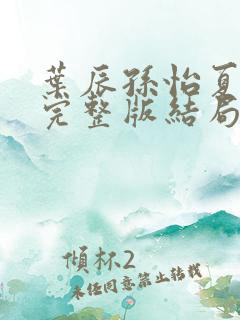 葉辰孫怡夏
完整版結局
傾杯2
未經同意禁止轉載